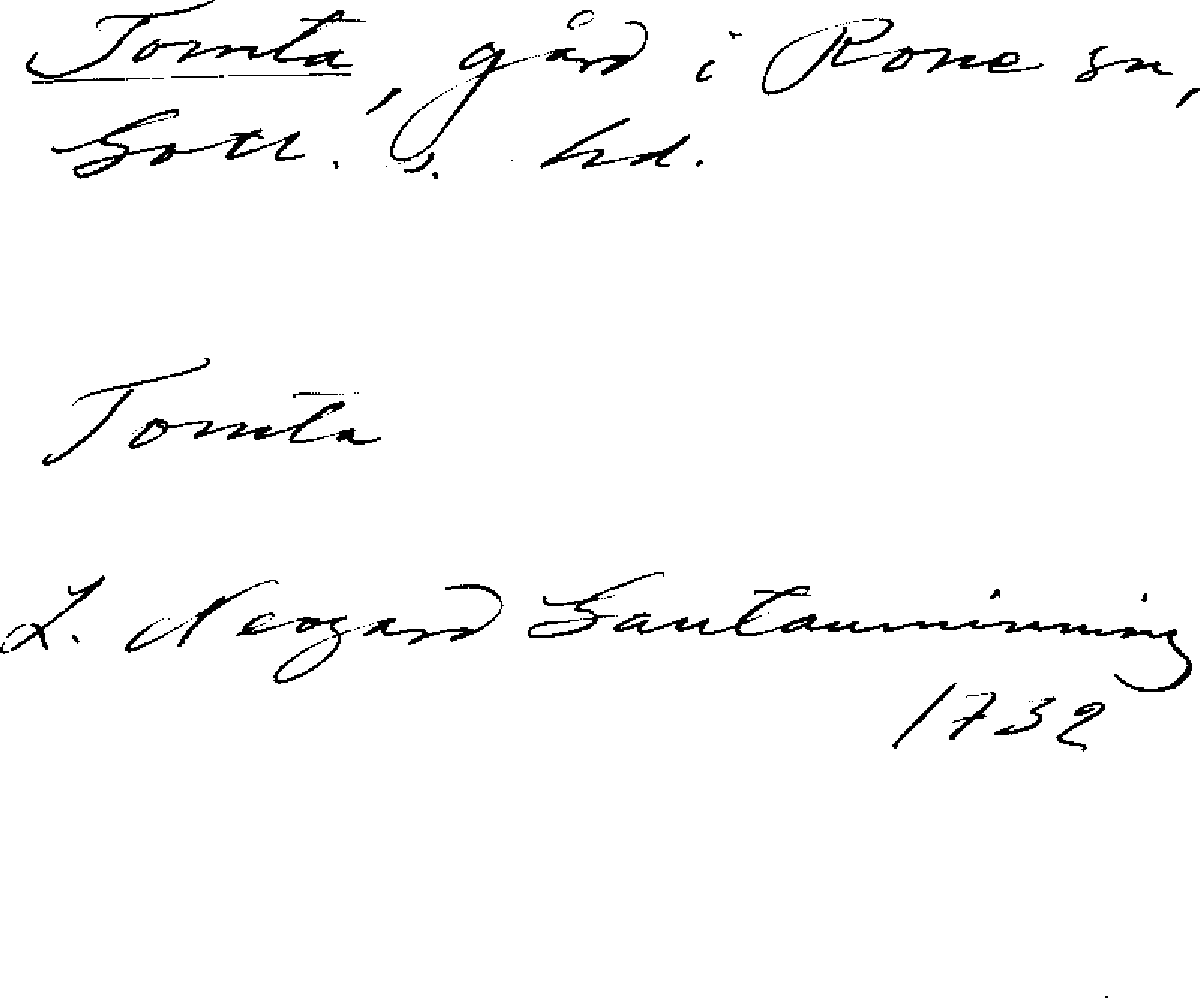 Tomta, gård i Rone sn,
Gotl. s. hd.
Tomta
L. Neogard Gautauminning
1732